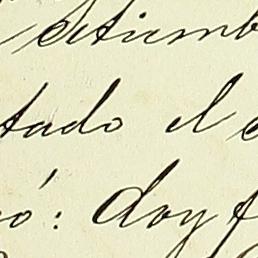 setiemb
tado el
ó: doy f